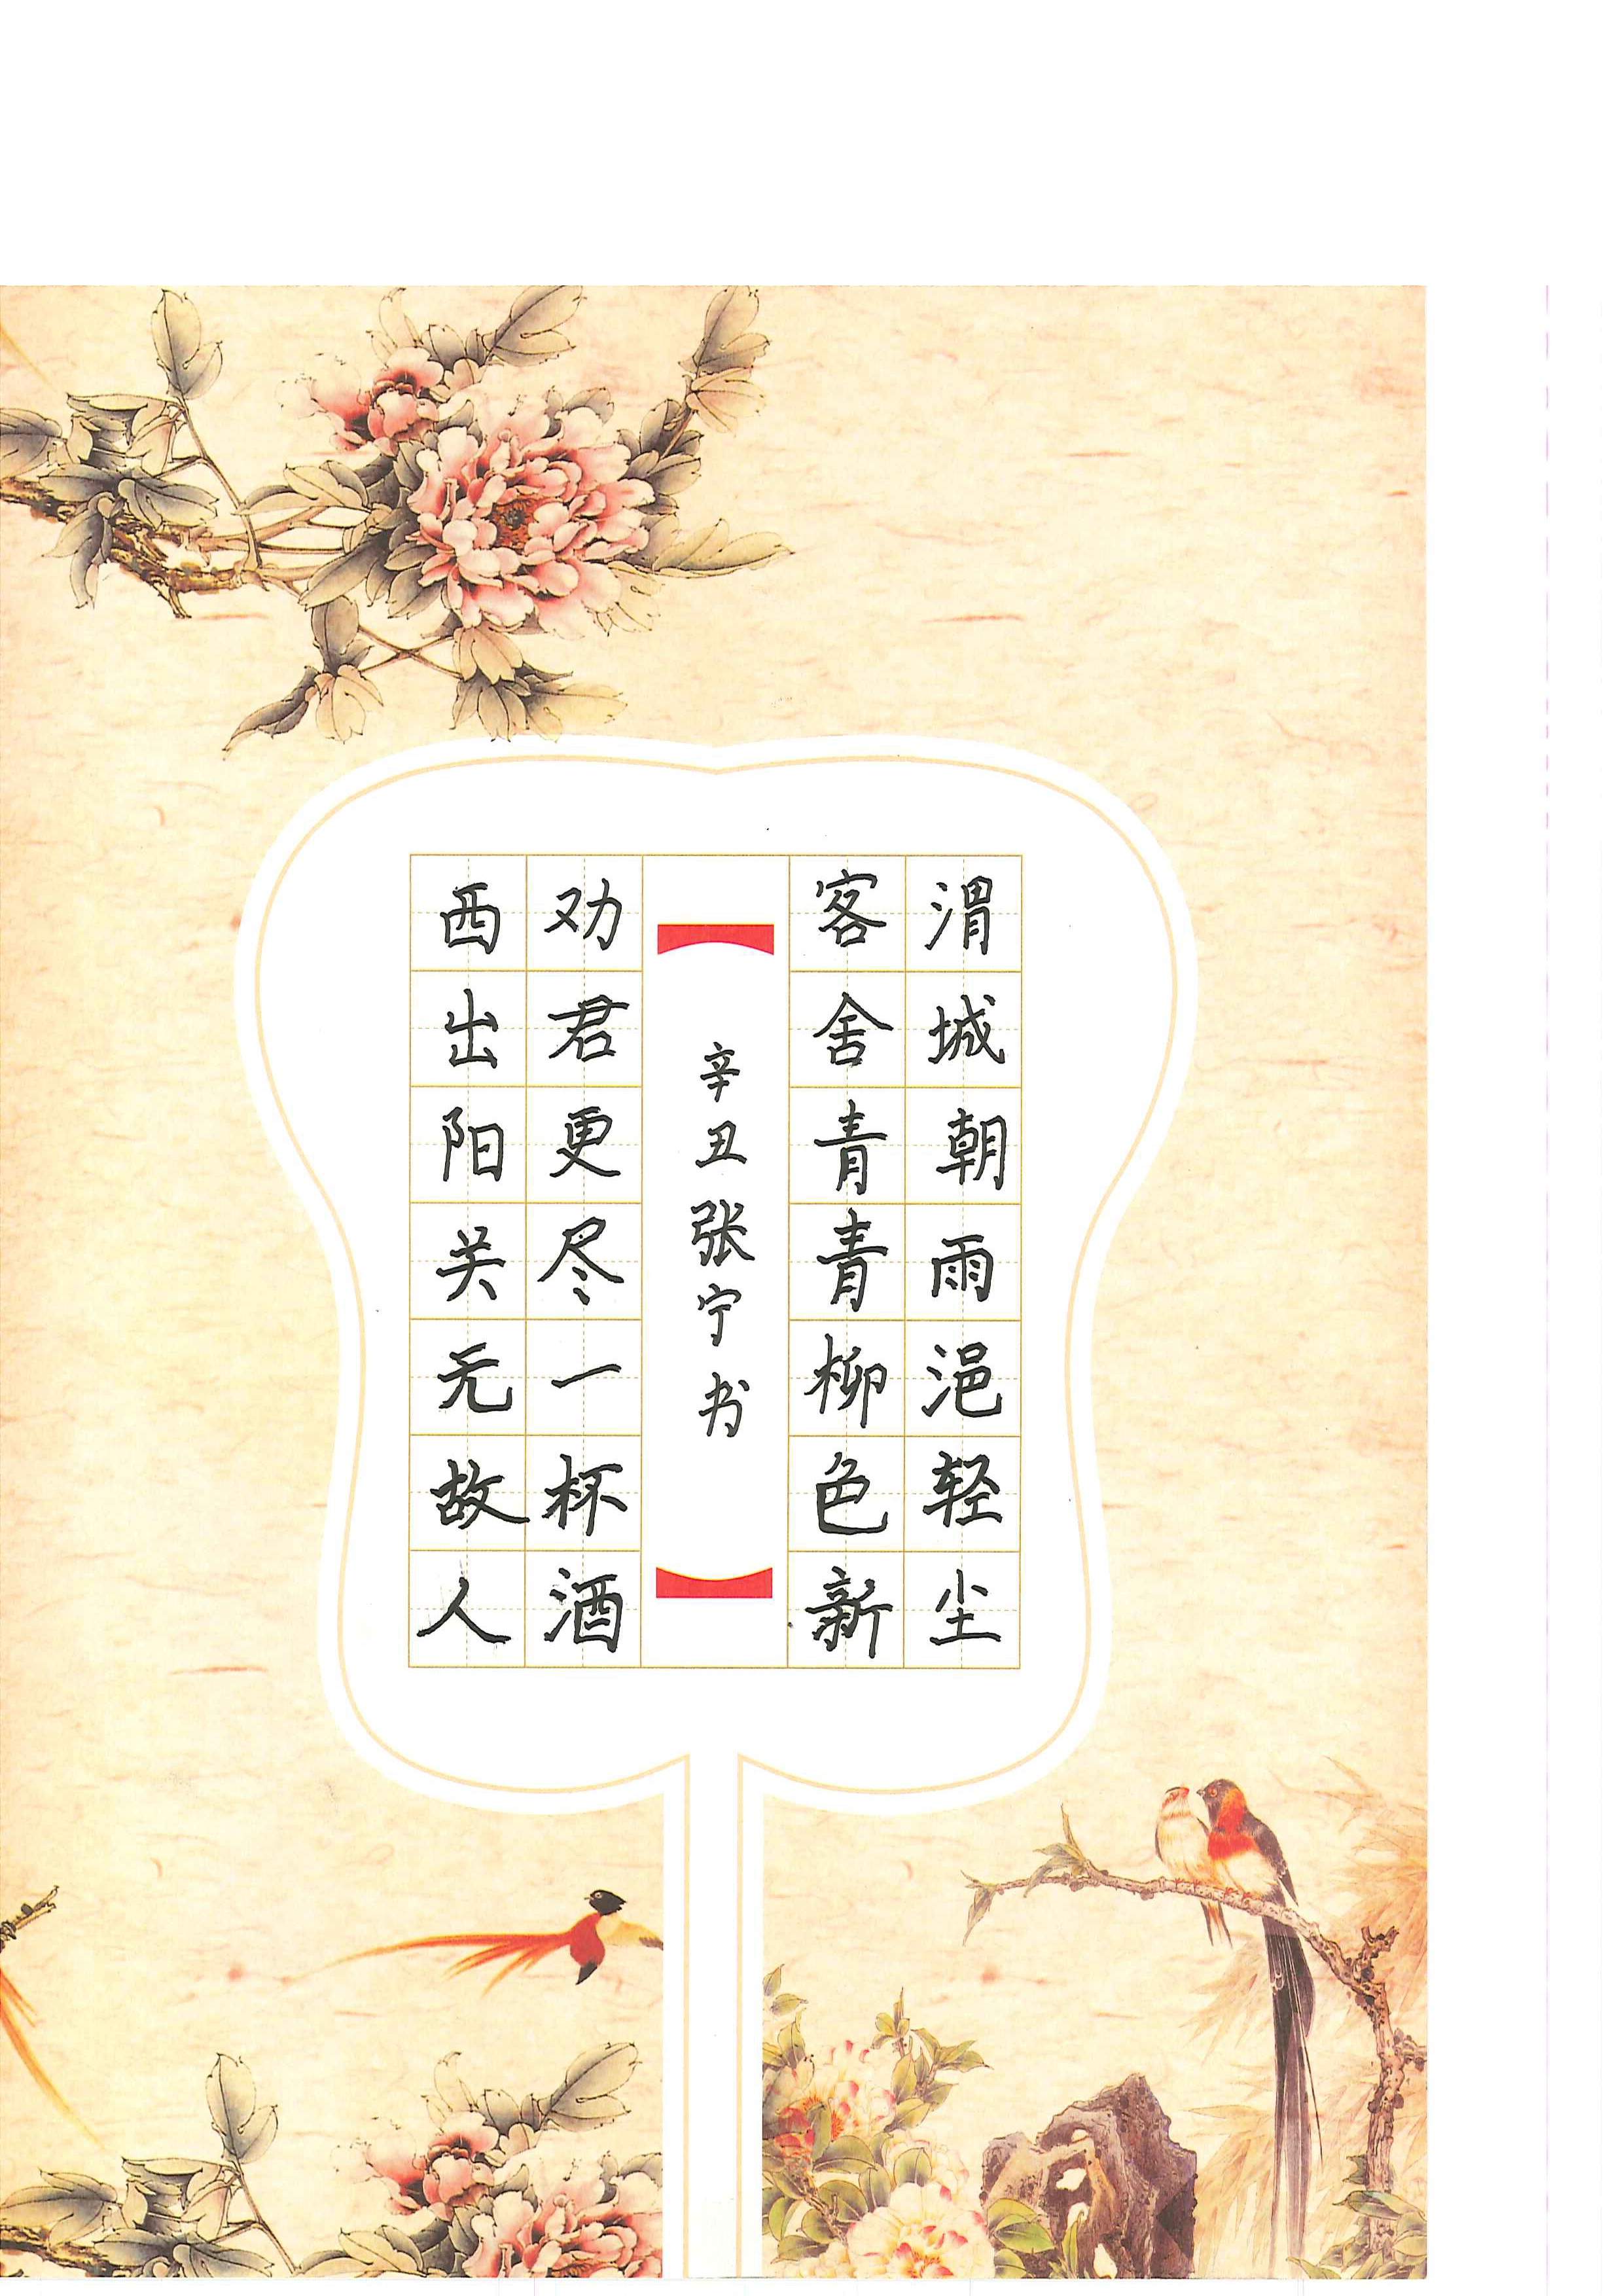 渭城朝雨浥轻尘
客舍青青柳色新
辛丑张宁书
劝君更尽一杯酒
西出阳关无故人